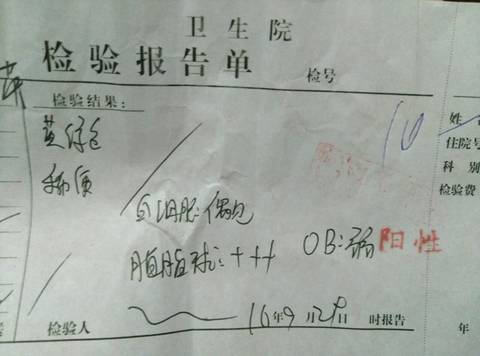 卫生院
检验报告单 检号
检验结果:
黄绿色
稀便
白细胞:偶见
脂肪球:+++ OB:弱阳性
检验人 16年9月29日 时报告
姓
住院号
科别
检验费
年